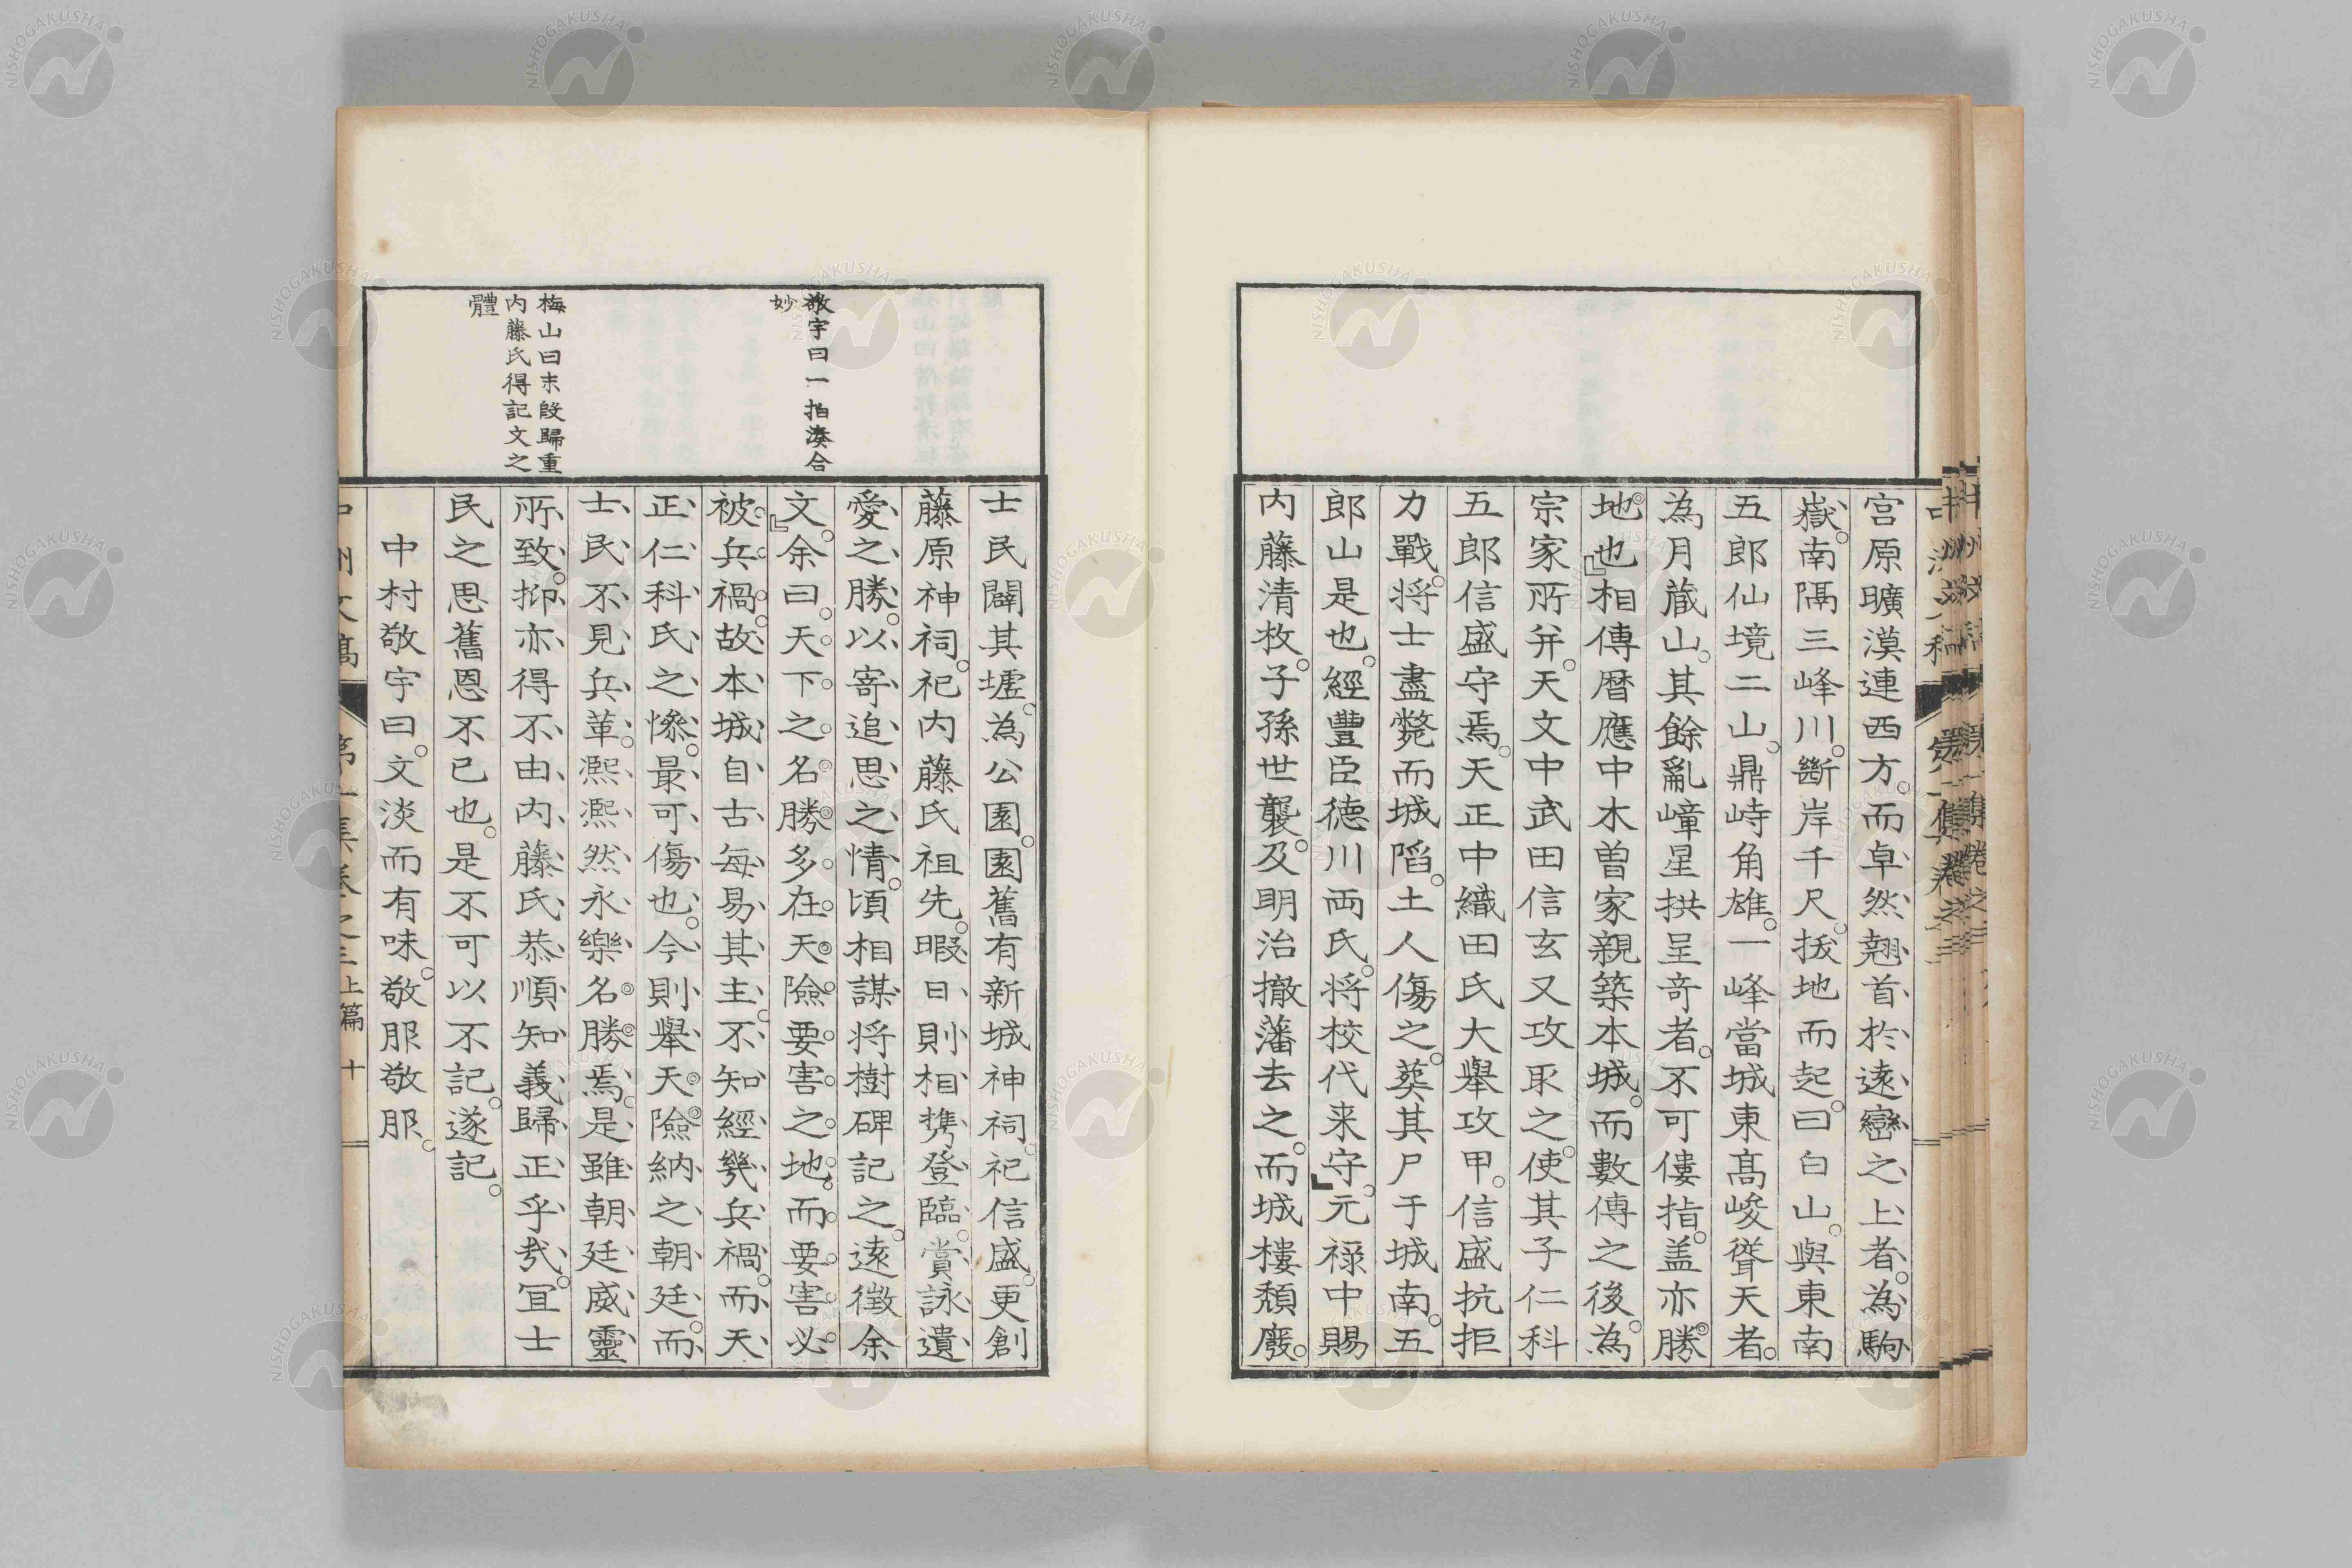 宮原曠漠連西方。而卓然翹首於遠巒之上者。為駒
嶽。南隔三峰川。斷岸千尺。拔地而起。曰白山。與東南
五郎仙境二山。鼎峙角雄。一峰當城東高峻聳天者。
為月蔵山。其餘亂嶂星拱呈奇者。不可僂指。盖亦勝
地也』相傳暦應中木曽家親築本城。而數傳之後。為
宗家所弁。天文中武田信玄又攻取之。使其子仁科
五郎信盛守焉。天正中織田氏大舉攻甲。信盛抗拒
力戰。将士盡斃而城陷。土人傷之。葬其尸于城南。五
郎山是也。經豐臣德川両氏。将校代来守。』元禄中賜
内藤清枚。子孫世襲。及明治撤藩去之。而城樓頽廢。
士民闢其墟。為公園。園舊有新城神祠。祀信盛。更創
藤原神祠。祀内藤氏祖先。暇日則相携登臨。賞詠遺
愛之勝。以寄追思之情。頃相謀将樹碑記之。遠徵余
文。』余曰。天下之名勝多在天險要害之地。而要害必
被兵禍。故本城自古每易其主。不知經幾兵禍。而天
正仁科氏之慘。最可傷也。今則舉天險納之朝廷。而
士民不見兵革。熈熈然永樂名勝焉。是雖朝廷威靈
所致。抑亦得不由内藤氏恭順知義歸正乎㢤。冝士
民之思舊恩不已也。是不可以不記。遂記。
中村敬宇曰。文淡而有味。敬服敬服。
敬宇曰一拍湊合
妙
梅山曰末段歸重
内藤氏得記文之
體